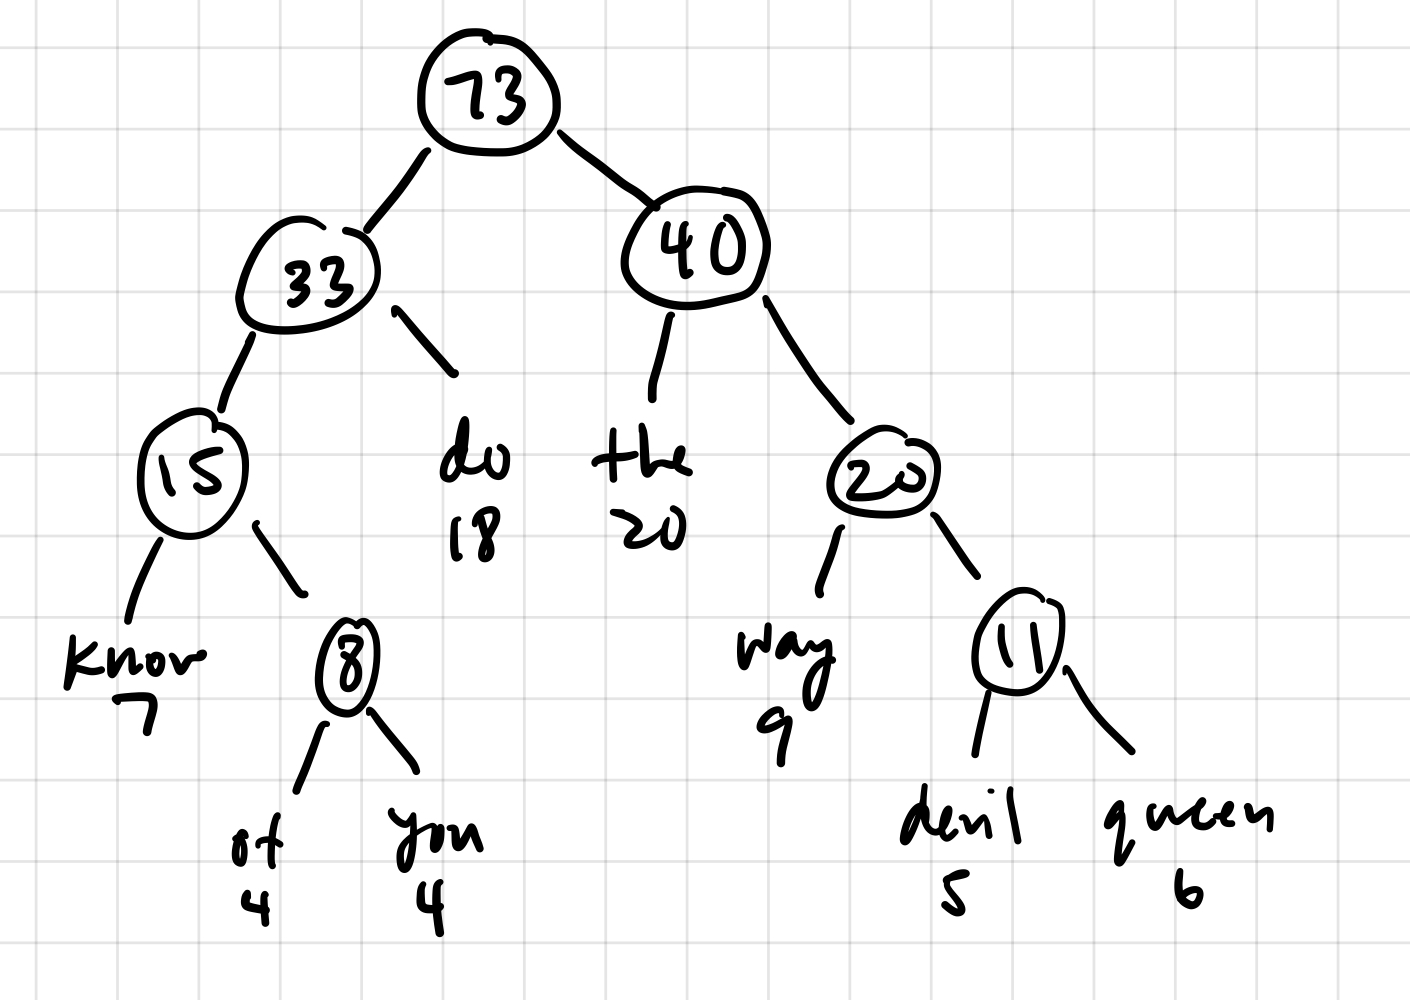 73
33
40
15
do
18
the
20
20
know
7
8
way
9
11
of
4
you
4
devil
5
queen
6